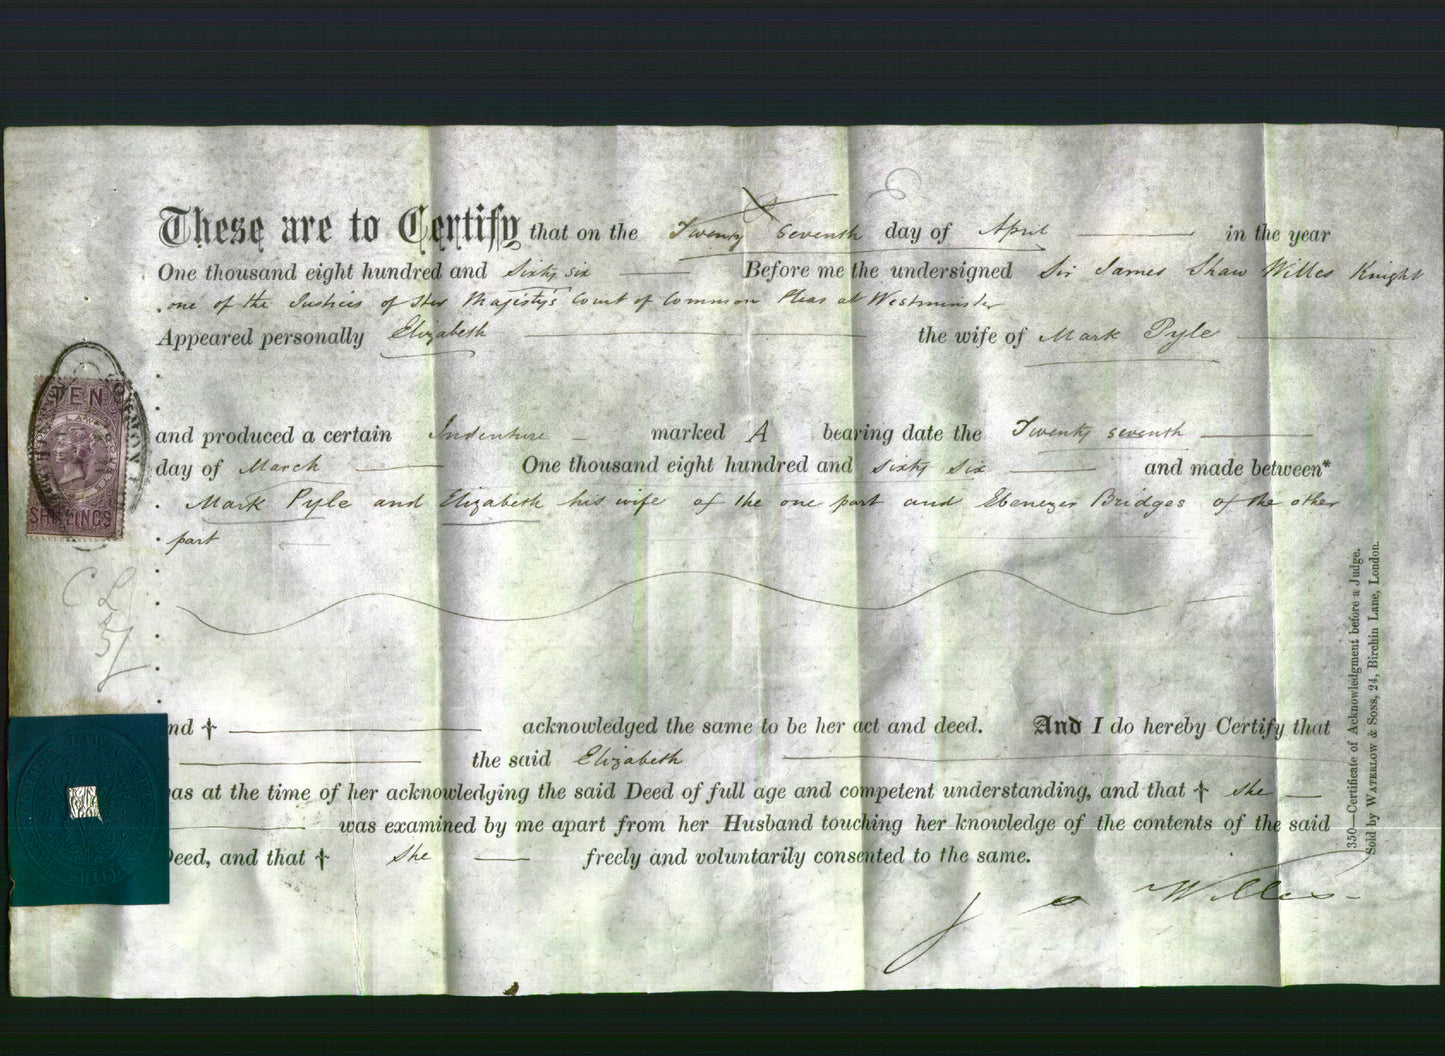 These are to Certify that on the Twenty seventh day of April in the year
One thousand eight hundred and Sixty six Before me the undersigned Sir James Shaw Willes Knight
one of the Justices of Her Majesty's Court of Common Pleas at Westminster
Appeared personally Elizabeth the wife of Mark Pyle
and produced a certain Indenture marked A bearing date the Twenty seventh
day of March One thousand eight hundred and sixty six and made between*
Mark Pyle and Elizabeth his wife of the one part and Ebenezer Bridges of the other
part
TEN
SHILLINGS
C L
5/
nd † acknowledged the same to be her act and deed. And I do hereby Certify that
the said Elizabeth
as at the time of her acknowledging the said Deed of full age and competent understanding, and that † she
was examined by me apart from her Husband touching her knowledge of the contents of the said
Deed, and that † she freely and voluntarily consented to the same.
J S Willes
350—Certificate of Acknowledgment before a Judge.
Sold by WATERLOW & SONS, 24, Birchin Lane, London.